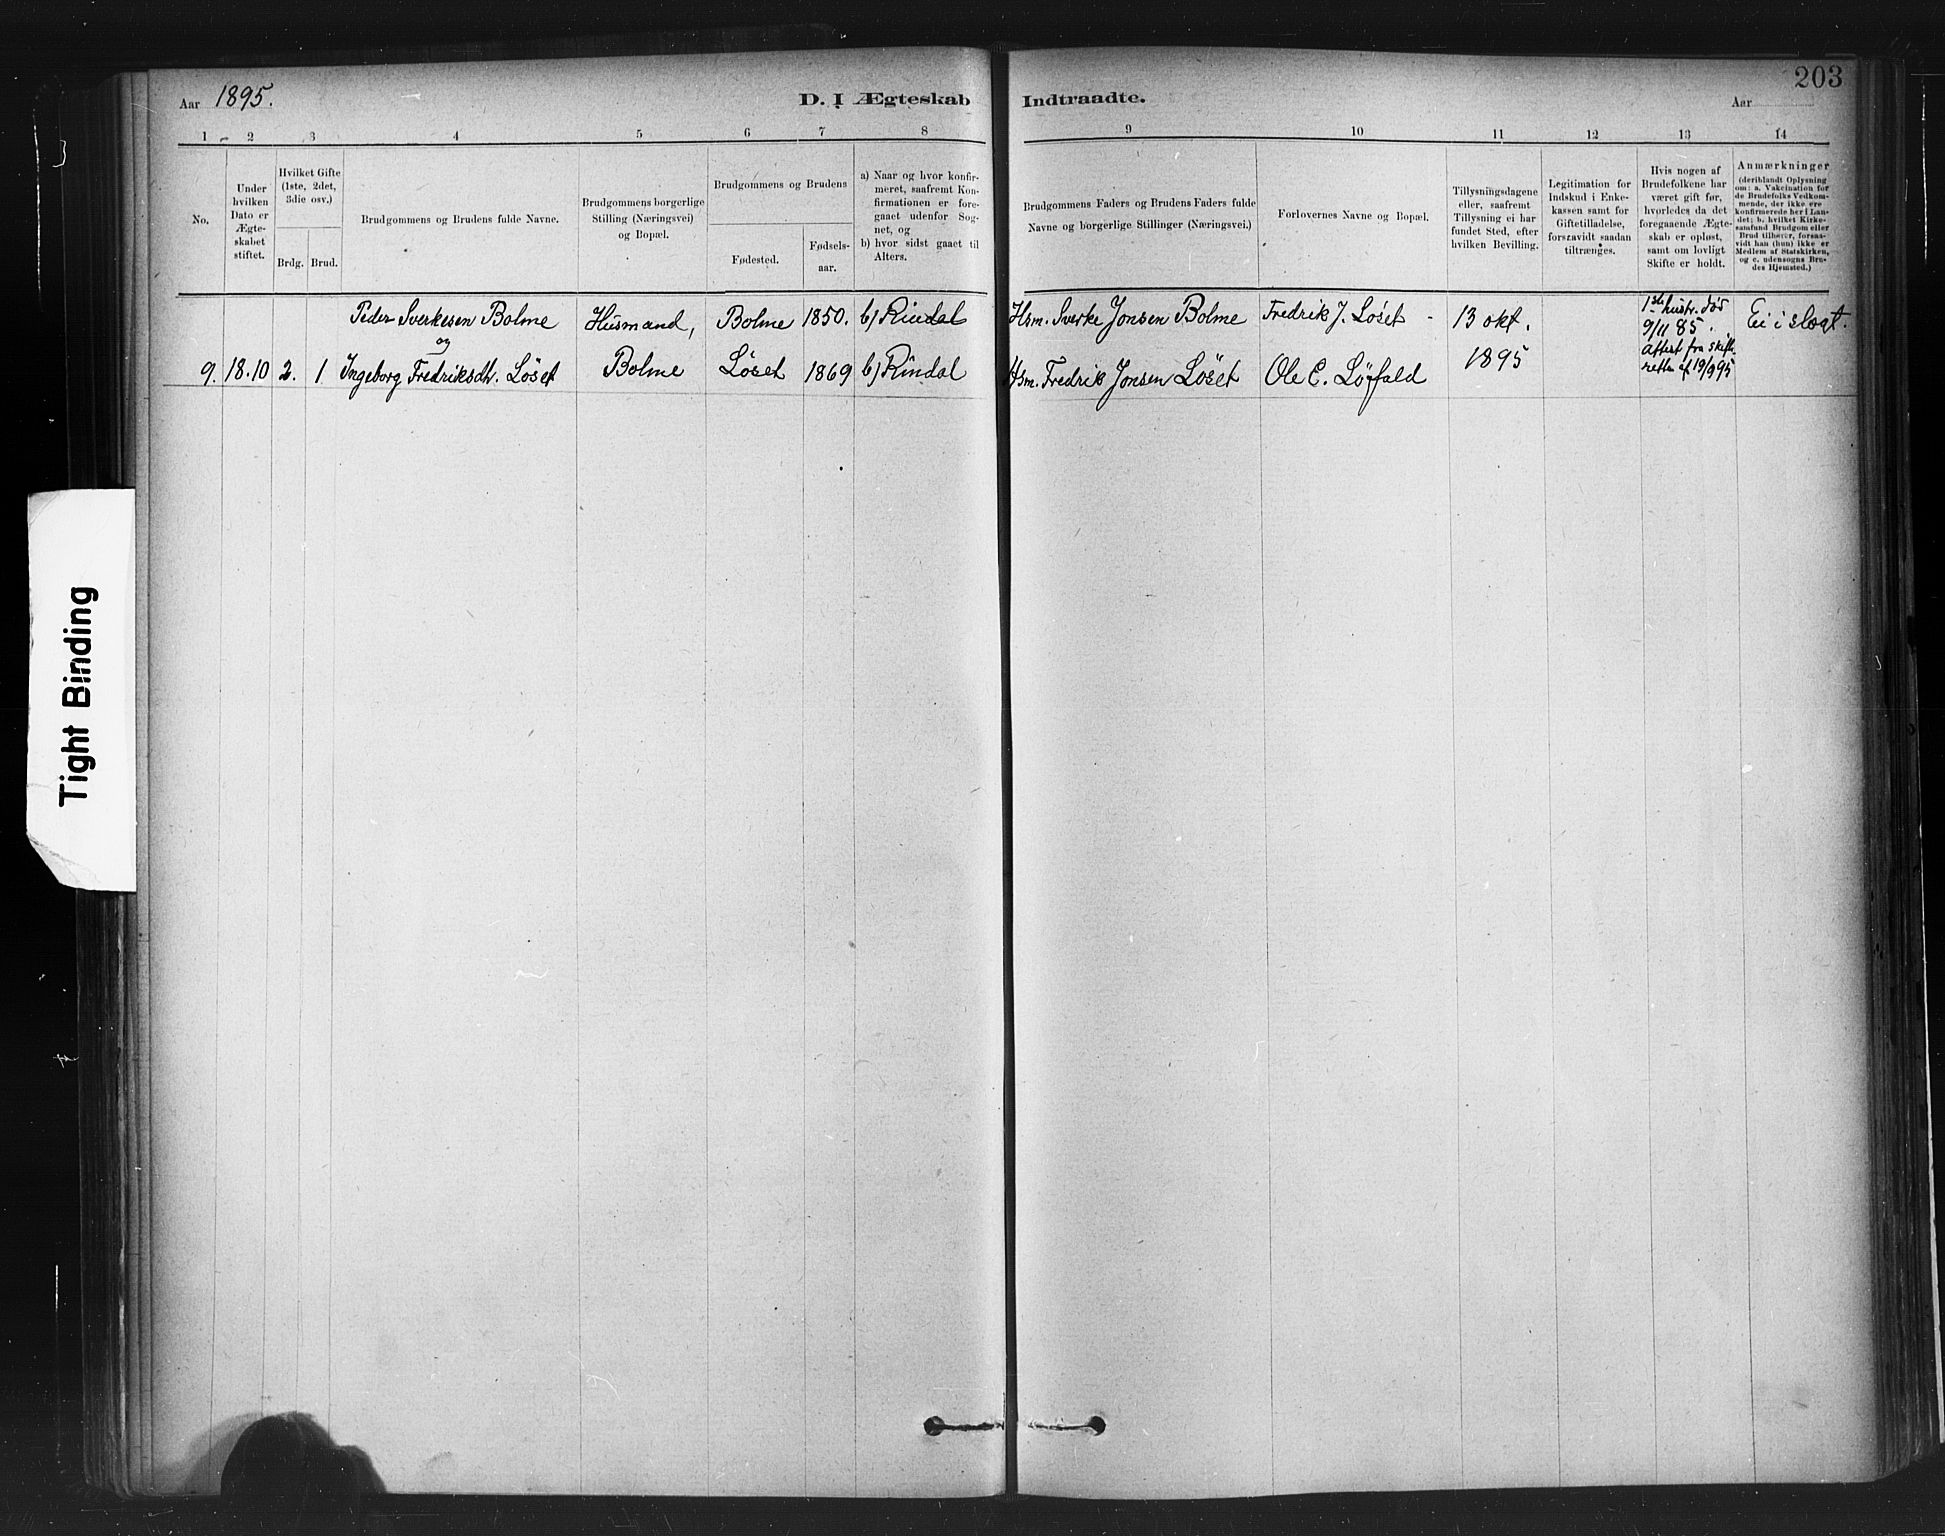 203
Aar 1895.
D. I Ægteskab Indtraadte.
Aar
1 2 3 4 5 6 7 8 9 10 11 12 13 14
No.
Under
hvilken
Dato er
Ægte-
skabet
stiftet.
Hvilket Gifte
(1ste, 2det,
3die osv.)
Brdg. Brud.
Brudgommens og Brudens fulde Navne.
Brudgommens borgerlige
Stilling (Næringsvei)
og Bopæl.
Brudgommens og Brudens
Fødested.
Fødsels-
aar.
a) Naar og hvor konfir-
meret, saafremt Kon-
firmationen er fore-
gaaet udenfor Sog-
net, og
b) hvor sidst gaaet til
Alters.
Brudgommens Faders og Brudens Faders fulde
Navne og borgerlige Stillinger (Næringsvei.)
Forlovernes Navne og Bopæl.
Tillysningsdagene
eller, saafremt
Tillysning ei har
fundet Sted, efter
hvilken Bevilling.
Legitimation for
Indskud i Enke-
kassen samt for
Giftetilladelse,
forsaavidt saadan
tiltrænges.
Hvis nogen af
Brudefolkene har
været gift før,
hvorledes da det
foregaaende Ægte-
skab er opløst,
samt om lovligt
Skifte er holdt.
Anmærkninger
(deriblandt Oplysning
om: a. Vakcination for
de Brudefolks Vedkom-
mende, der ikke ere
konfirmerede her i Lan-
det; b. hvilket Kirke-
samfund Brudgom eller
Brud tilhører, forsaa-
vidt han (hun) ikke er
Medlem af Statskirken,
og c. udensogns Bru-
des Hjemsted.)
Peder Sverkesen Bolme Husmand, Bolme 1850. b) Rindal Hsm. Sverke Jonsen Bolme Fredrik J. Løset - 13 okt.
og
9. 18.10 2. 1 Ingeborg Fredriksdtr. Løset Bolme Løset 1869 b) Rindal Hsm. Fredrik Jonsen Løset Ole E. Løfald 1895
1ste hustr. død
9/11 85.
Attest fra skifte-
retten af 19/9 95
Ei i slægt.
Tight Binding